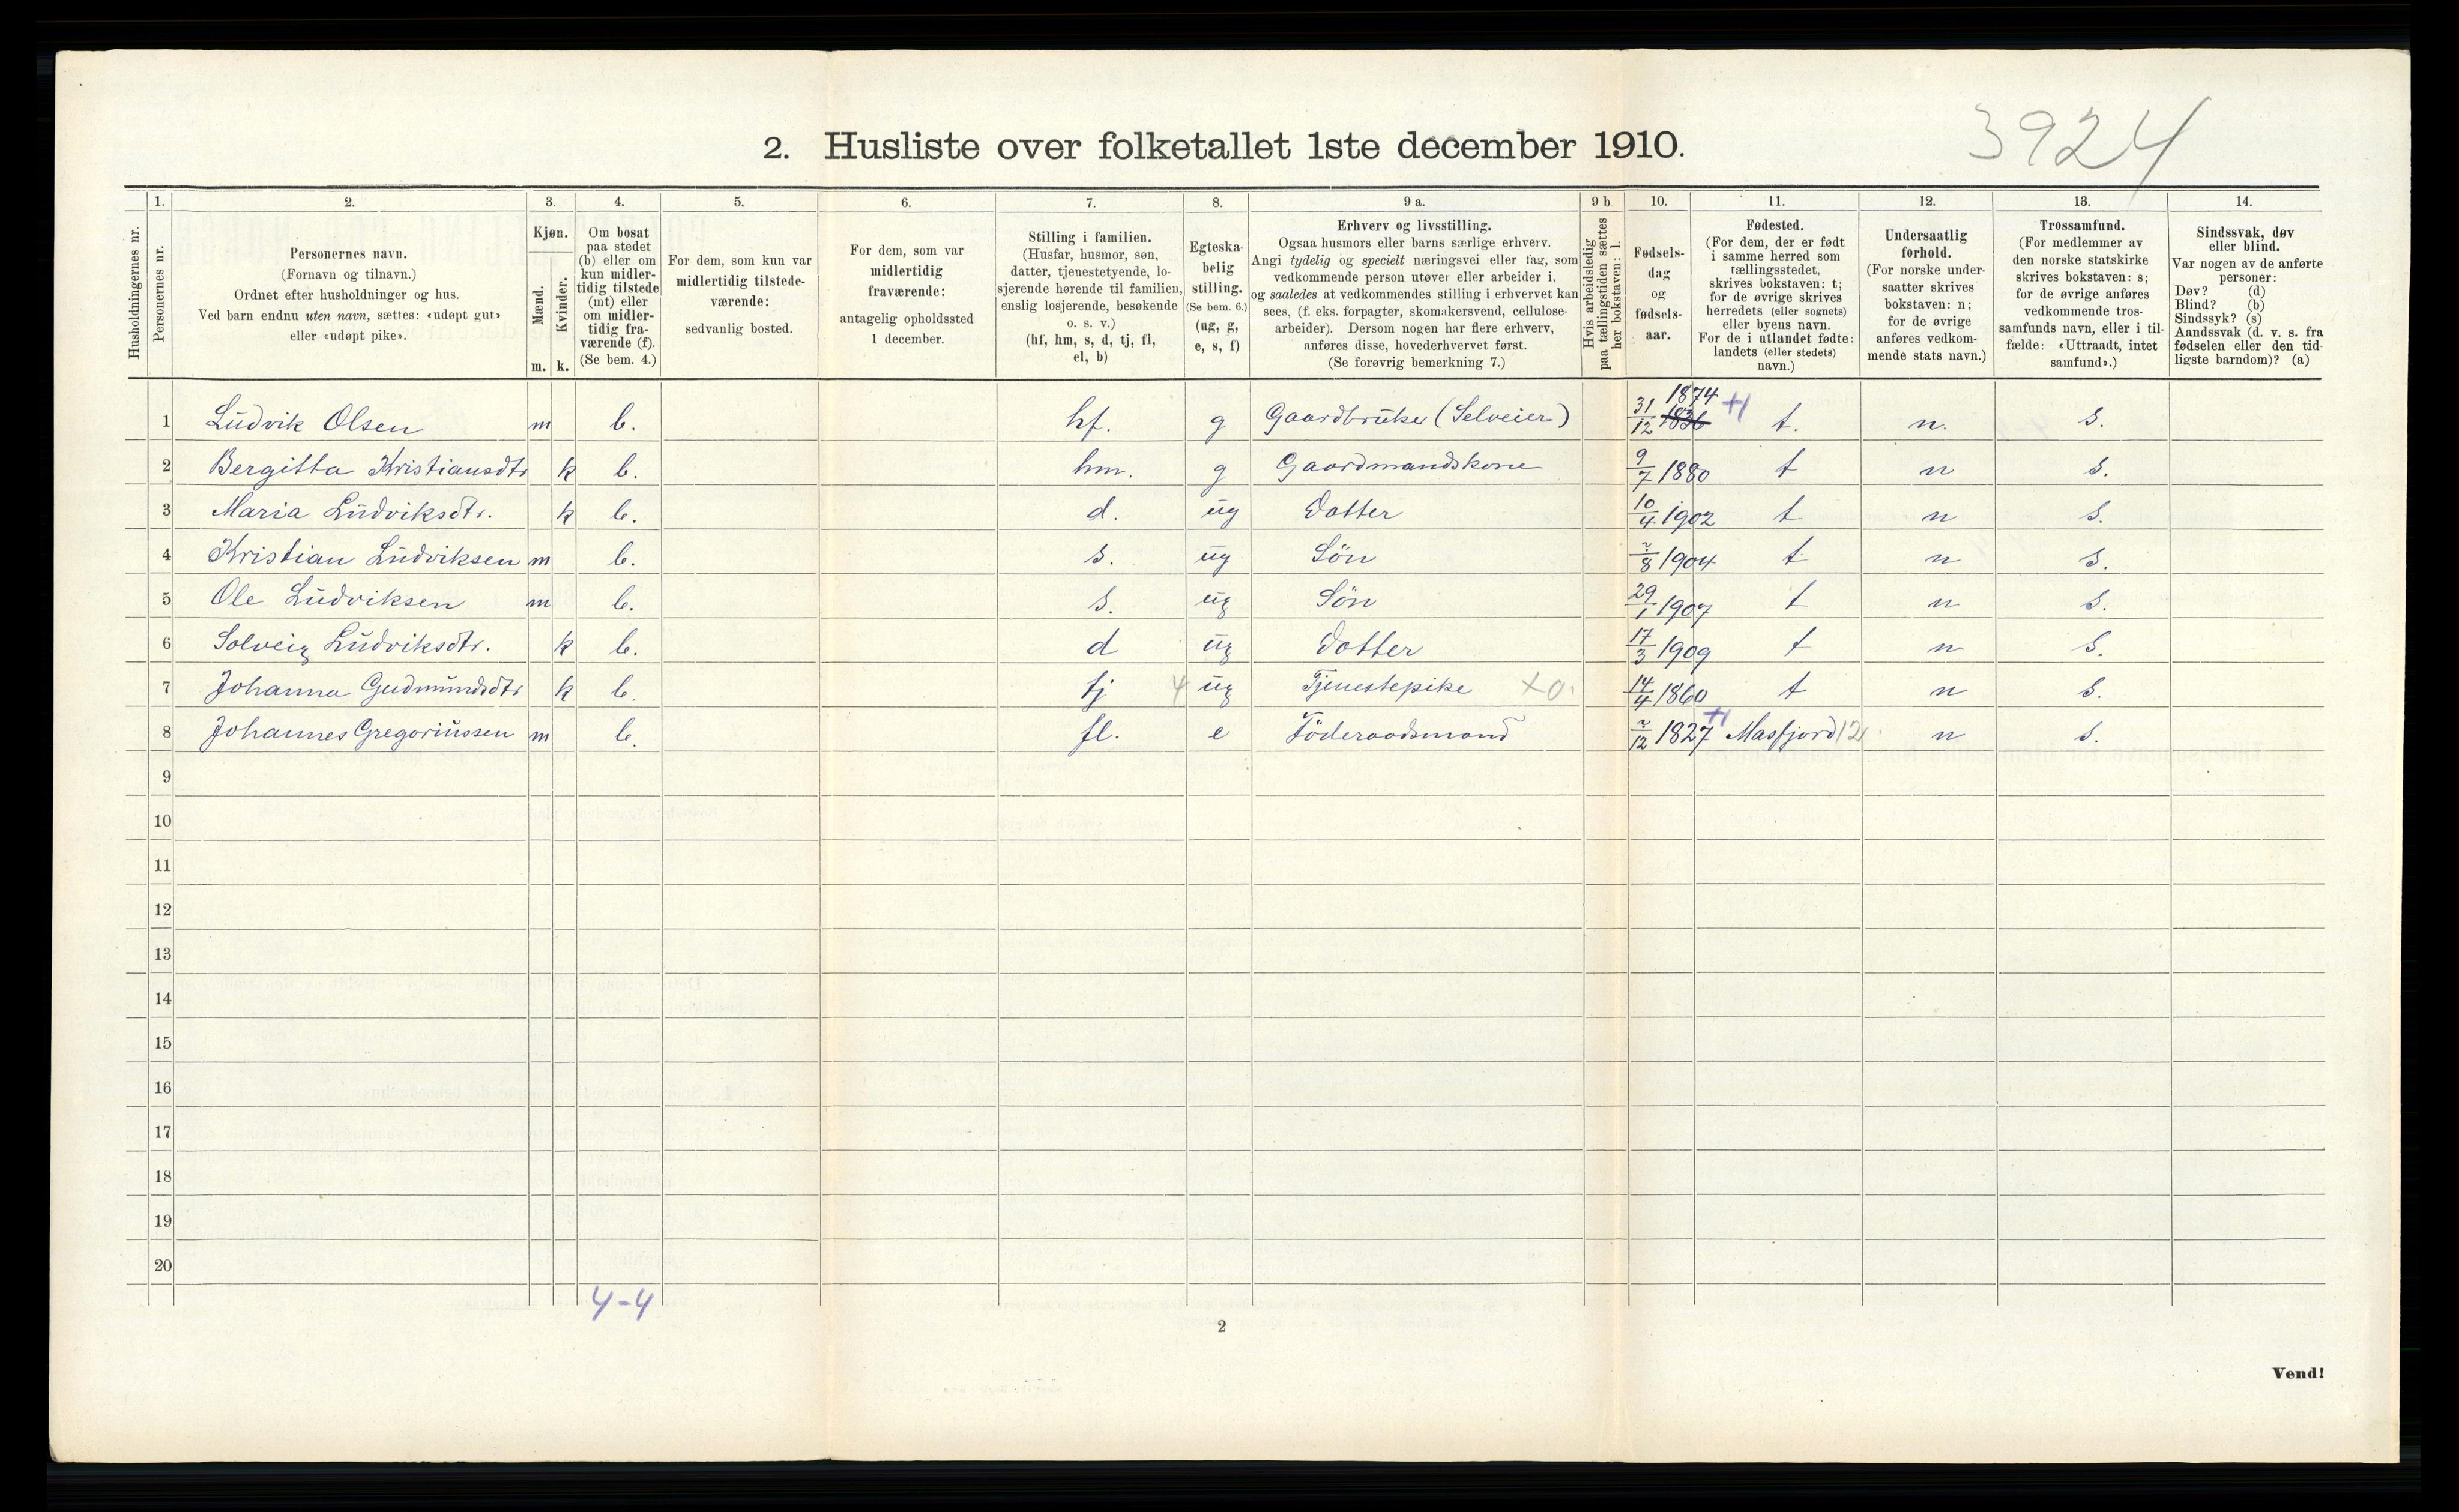 3924
2. Husliste over folketallet 1ste december 1910.
Husholdningernes nr.
1.
Personernes nr.
2.
Personernes navn.
(Fornavn og tilnavn.)
Ordnet efter husholdninger og hus.
Ved barn endnu uten navn, sættes: «udøpt gut»
eller «udøpt pike».
3.
Kjøn.
Mænd.
Kvinder.
m. k.
4.
Om bosat
paa stedet
(b) eller om
kun midler-
tidig tilstede
(mt) eller
om midler-
tidig fra-
værende (f).
(Se bem. 4.)
5.
For dem, som kun var
midlertidig tilstede-
værende:
sedvanlig bosted.
6.
For dem, som var
midlertidig
fraværende:
antagelig opholdssted
1 december.
7.
Stilling i familien.
(Husfar, husmor, søn,
datter, tjenestetyende, lo-
sjerende hørende til familien,
enslig losjerende, besøkende
o. s. v.)
(hf, hm, s, d, tj, fl,
el, b)
8.
Egteska-
belig
stilling.
(Se bem. 6.)
(ug, g,
e, s, f)
9 a.
Erhverv og livsstilling.
Ogsaa husmors eller barns særlige erhverv.
Angi tydelig og specielt næringsvei eller fag, som
vedkommende person utøver eller arbeider i,
og saaledes at vedkommendes stilling i erhvervet kan
sees, (f. eks. forpagter, skomakersvend, cellulose-
arbeider). Dersom nogen har flere erhverv,
anføres disse, hovederhvervet først.
(Se forøvrig bemerkning 7.)
9 b
Hvis arbeidsledig
paa tællingstiden sættes
her bokstaven: l.
10.
Fødsels-
dag
og
fødsels-
aar.
11.
Fødested.
(For dem, der er født
i samme herred som
tællingsstedet,
skrives bokstaven: t;
for de øvrige skrives
herredets (eller sognets)
eller byens navn.
For de i utlandet fødte:
landets (eller stedets)
navn.)
12.
Undersaatlig
forhold.
(For norske under-
saatter skrives
bokstaven: n;
for de øvrige
anføres vedkom-
mende stats navn.)
13.
Trossamfund.
(For medlemmer av
den norske statskirke
skrives bokstaven: s;
for de øvrige anføres
vedkommende tros-
samfunds navn, eller i til-
fælde: «Uttraadt, intet
samfund».)
14.
Sindssvak, døv
eller blind.
Var nogen av de anførte
personer:
Døv? (d)
Blind? (b)
Sindssyk? (s)
Aandssvak (d. v. s. fra
fødselen eller den tid-
ligste barndom)? (a)
1 Ludvik Olsen m b. hf. g Gaardbruker (Selveier) 31/12 1836 1874 t. n. s.
2 Bergitta Kristiansdtr k b. hm. g Gaardmandskone 9/7 1880 t n s.
3 Maria Ludviksdtr. k b. d. ug Datter 10/4 1902 t n s.
4 Kristian Ludviksen m b. s. ug Sön 2/8 1904 t n s.
5 Ole Ludviksen m b. s. ug Sön 29/1 1907 t n s.
6 Solveig Ludviksdtr. k b. d ug Datter 17/3 1909 t n s.
7 Johanna Gudmundsdtr k b. tj 4 ug Tjenestepike X0. 14/4 1860 t n s.
8 Johannes Gregoriussen m b. fl. e Föderaadsmand 2/12 1827 Masfjord 12 n s.
9
10
11
12
13
14
15
16
17
18
19
20
4-4
2
Vend!